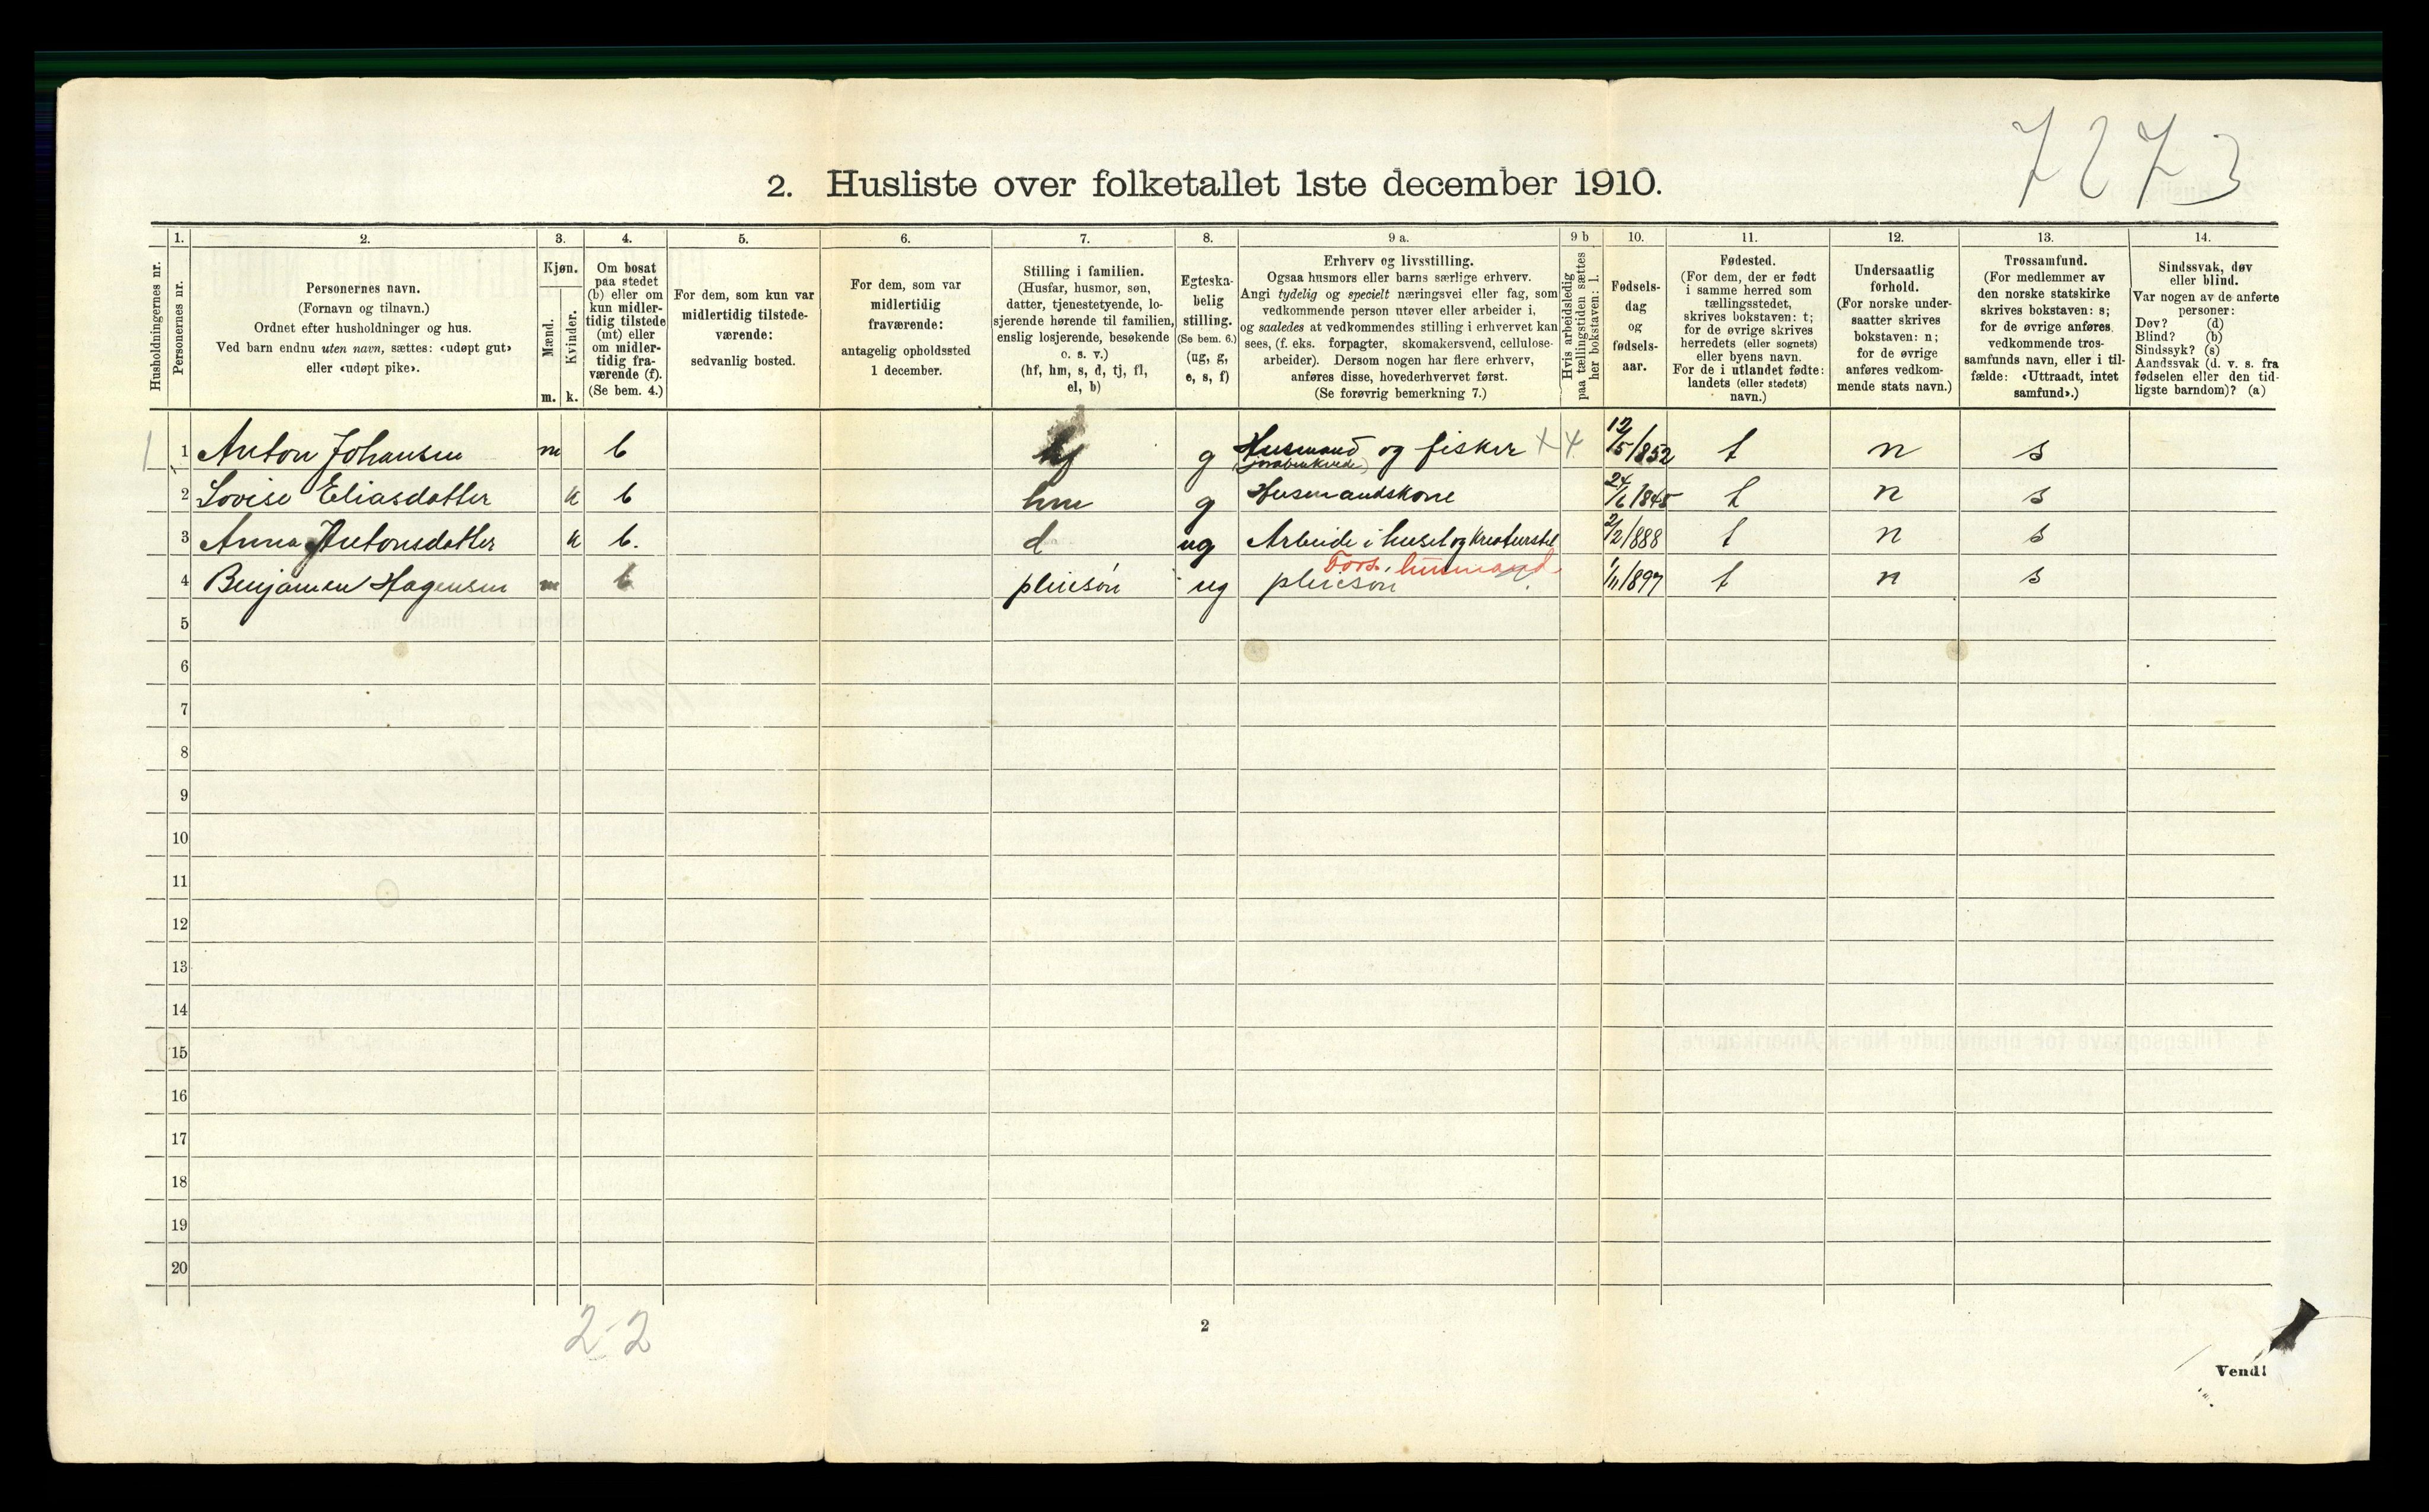 7273
2. Husliste over folketallet 1ste december 1910.
1. 2. 3. 4. 5. 6. 7. 8. 9 a. 9 b 10. 11. 12. 13. 14.
Husholdningernes nr.
Personernes nr.
Personernes navn.
(Fornavn og tilnavn.)
Ordnet efter husholdninger og hus.
Ved barn endnu uten navn, sættes: «udøpt gut»
eller «udøpt pike».
Kjøn.
Mænd.
Kvinder.
m. k.
Om bosat
paa stedet
(b) eller om
kun midler-
tidig tilstede
(mt) eller
om midler-
tidig fra-
værende (f).
(Se bem. 4.)
For dem, som kun var
midlertidig tilstede-
værende:
sedvanlig bosted.
For dem, som var
midlertidig
fraværende:
antagelig opholdssted
1 december.
Stilling i familien.
(Husfar, husmor, søn,
datter, tjenestetyende, lo-
sjerende hørende til familien,
enslig losjerende, besøkende
o. s. v.)
(hf, hm, s, d, tj, fl,
el, b)
Egteska-
belig
stilling.
(Se bem. 6.)
(ug, g,
e, s, f)
Erhverv og livsstilling.
Ogsaa husmors eller barns særlige erhverv.
Angi tydelig og specielt næringsvei eller fag, som
vedkommende person utøver eller arbeider i,
og saaledes at vedkommendes stilling i erhvervet kan
sees, (f. eks. forpagter, skomakersvend, cellulose-
arbeider). Dersom nogen har flere erhverv,
anføres disse, hovederhvervet først.
(Se forøvrig bemerkning 7.)
Hvis arbeidsledig
paa tællingstiden sættes
her bokstaven: l.
Fødsels-
dag
og
fødsels-
aar.
Fødested.
(For dem, der er født
i samme herred som
tællingsstedet,
skrives bokstaven: t;
for de øvrige skrives
herredets (eller sognets)
eller byens navn.
For de i utlandet fødte:
landets (eller stedets)
navn.)
Undersaatlig
forhold.
(For norske under-
saatter skrives
bokstaven: n;
for de øvrige
anføres vedkom-
mende stats navn.)
Trossamfund.
(For medlemmer av
den norske statskirke
skrives bokstaven: s;
for de øvrige anføres
vedkommende tros-
samfunds navn, eller i til-
fælde: «Uttraadt, intet
samfund».)
Sindssvak, døv
eller blind.
Var nogen av de anførte
personer:
Døv? (d)
Blind? (b)
Sindssyk? (s)
Aandssvak (d. v. s. fra
fødselen eller den tid-
ligste barndom)? (a)
1 1 Anton Johansen m b hf g Husmand og fisker 12/5/1852 t n s
(jordbrukende)
2 Lovise Eliasdatter k b hm g Husmandskone 24/6 1845 t n s
3 Anna Antonsdatter k b. d ug Arbeide i huset og kreaturstel 2/2/888 t n s
Fors. husmand
4 Benjamin Hagensen m b pleiesøn ug pleiesøn 1/11/897 t n s
5
6
7
8
9
10
11
12
13
14
15
16
17
18
19
20
2-2
2
Vend!